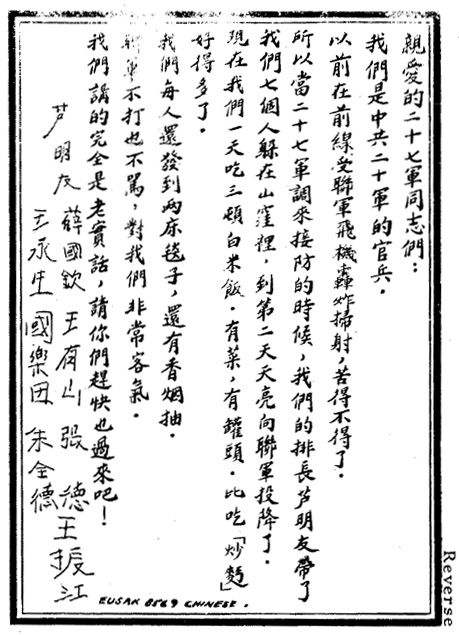 親愛的二十七軍同志們：
我們是中共二十軍的官兵．
以前在前線受聯軍飛機轟炸掃射，苦得不得了．
所以當二十七軍調來接防的時候，我們的排長芦明友帶了
我們七個人躲在山窪裡，到第二天天亮向聯軍投降了．
現在我們一天吃三頓白米飯．有菜，有罐頭．比吃「炒麵」
好得多了．
我們每人還發到兩床毯子，還有香烟抽．
聯軍不打也不罵，對我們非常客氣．
我們講的完全是老實話，請你們趕快也過來吧！
芦明友
薛國欽 王有山 張德 王振江
王承生 國樂田 朱全德
EUSAK 8569 CHINESE.
Reverse